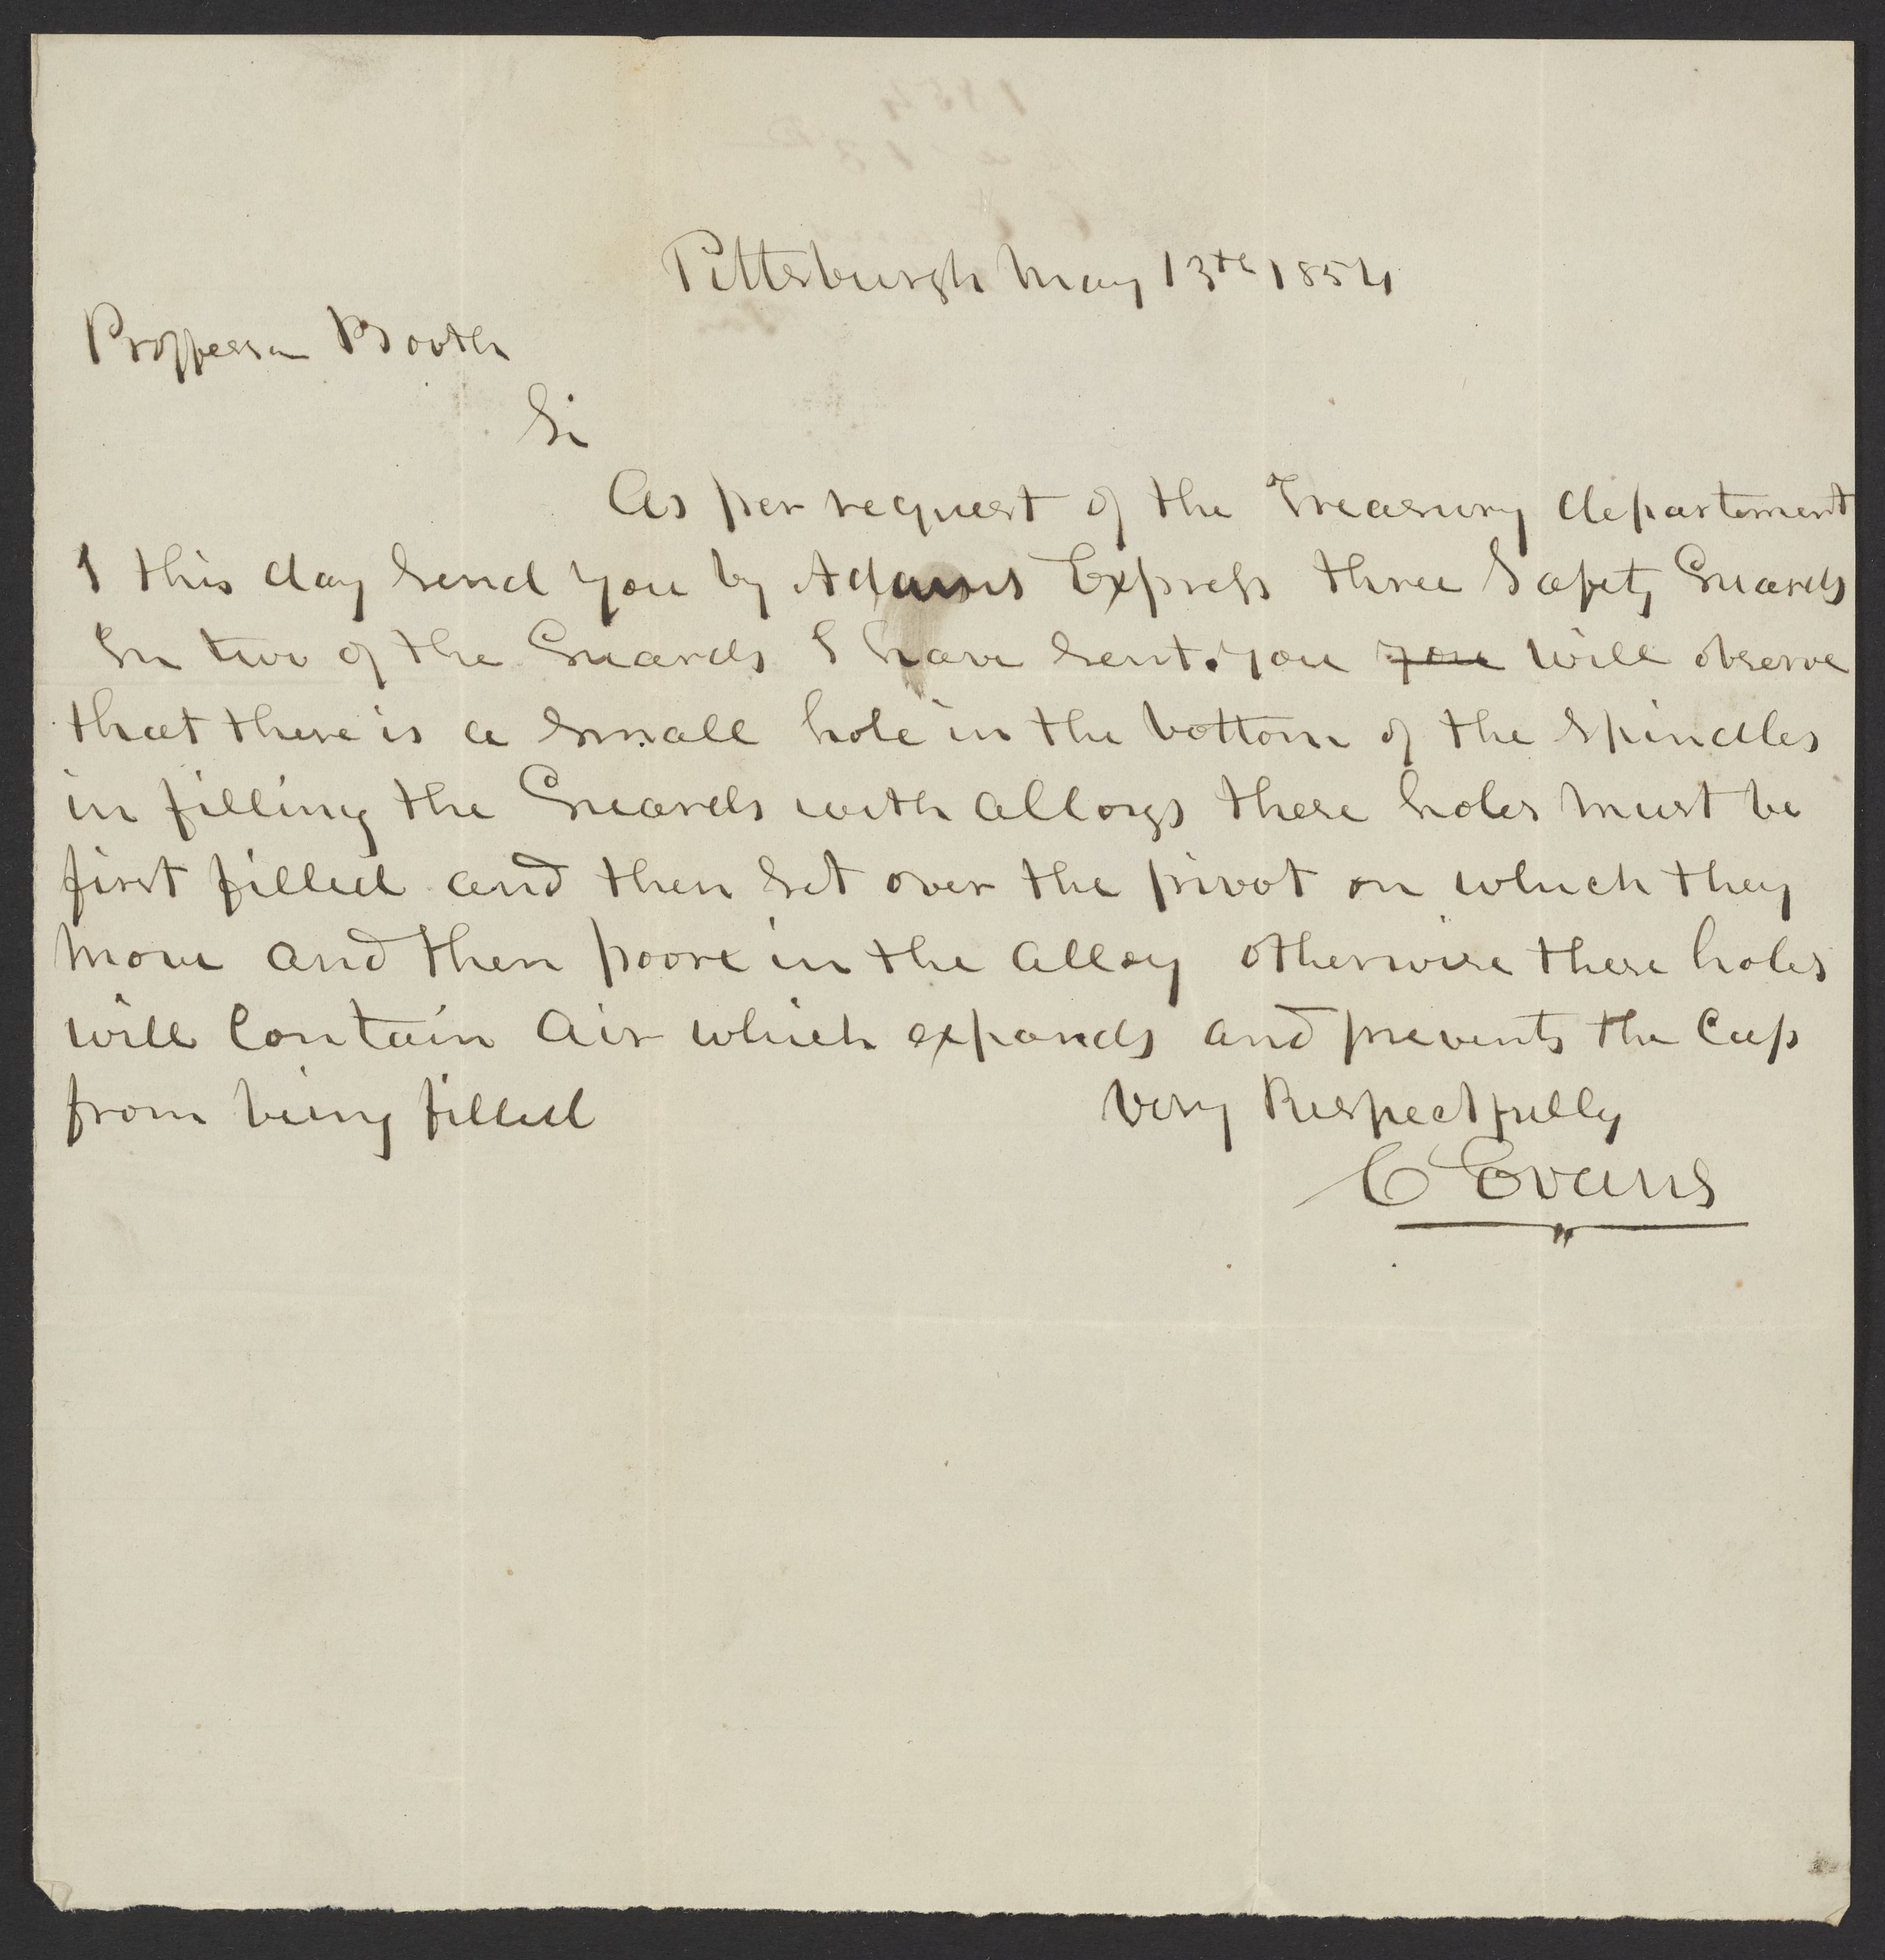 Pittsburgh May 13th 1854
Proffessor Booth
Sir
As per request of the Treasury departement
I this day Send you by Adams Express three Safety Guards
In two of the Guards I have Sent. you you will observe
that there is a Small hole in the bottom of the Spindles
in filling the Guards with alloys these holes must be
first filled and then Set over the pivot on which they
move and then poore in the alloy otherwise these holes
will Contain air which expands and prevents the Cup
from being filled Very Respectfully
C Evans